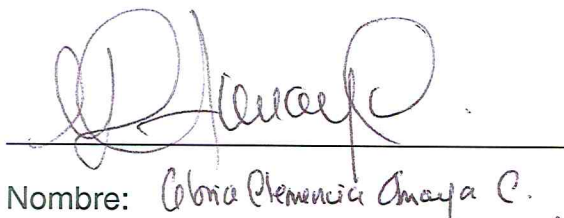 Nombre: Gloria Clemencia Amaya C.